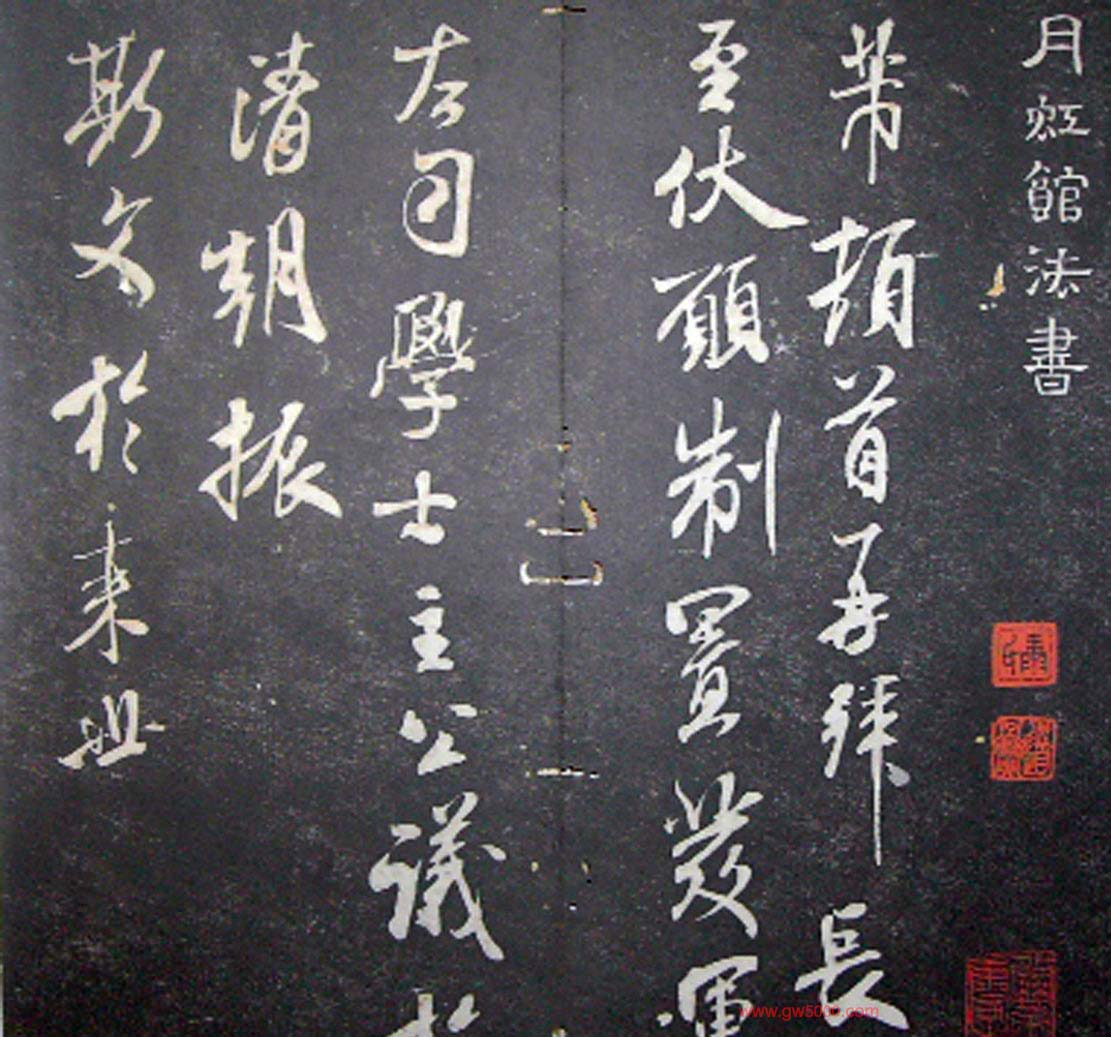 月虹館法書
芾頓首再拜 長
至伏願制置發運
左司學士主公議於
清朝振
斯文於來世
www.gw5000.com